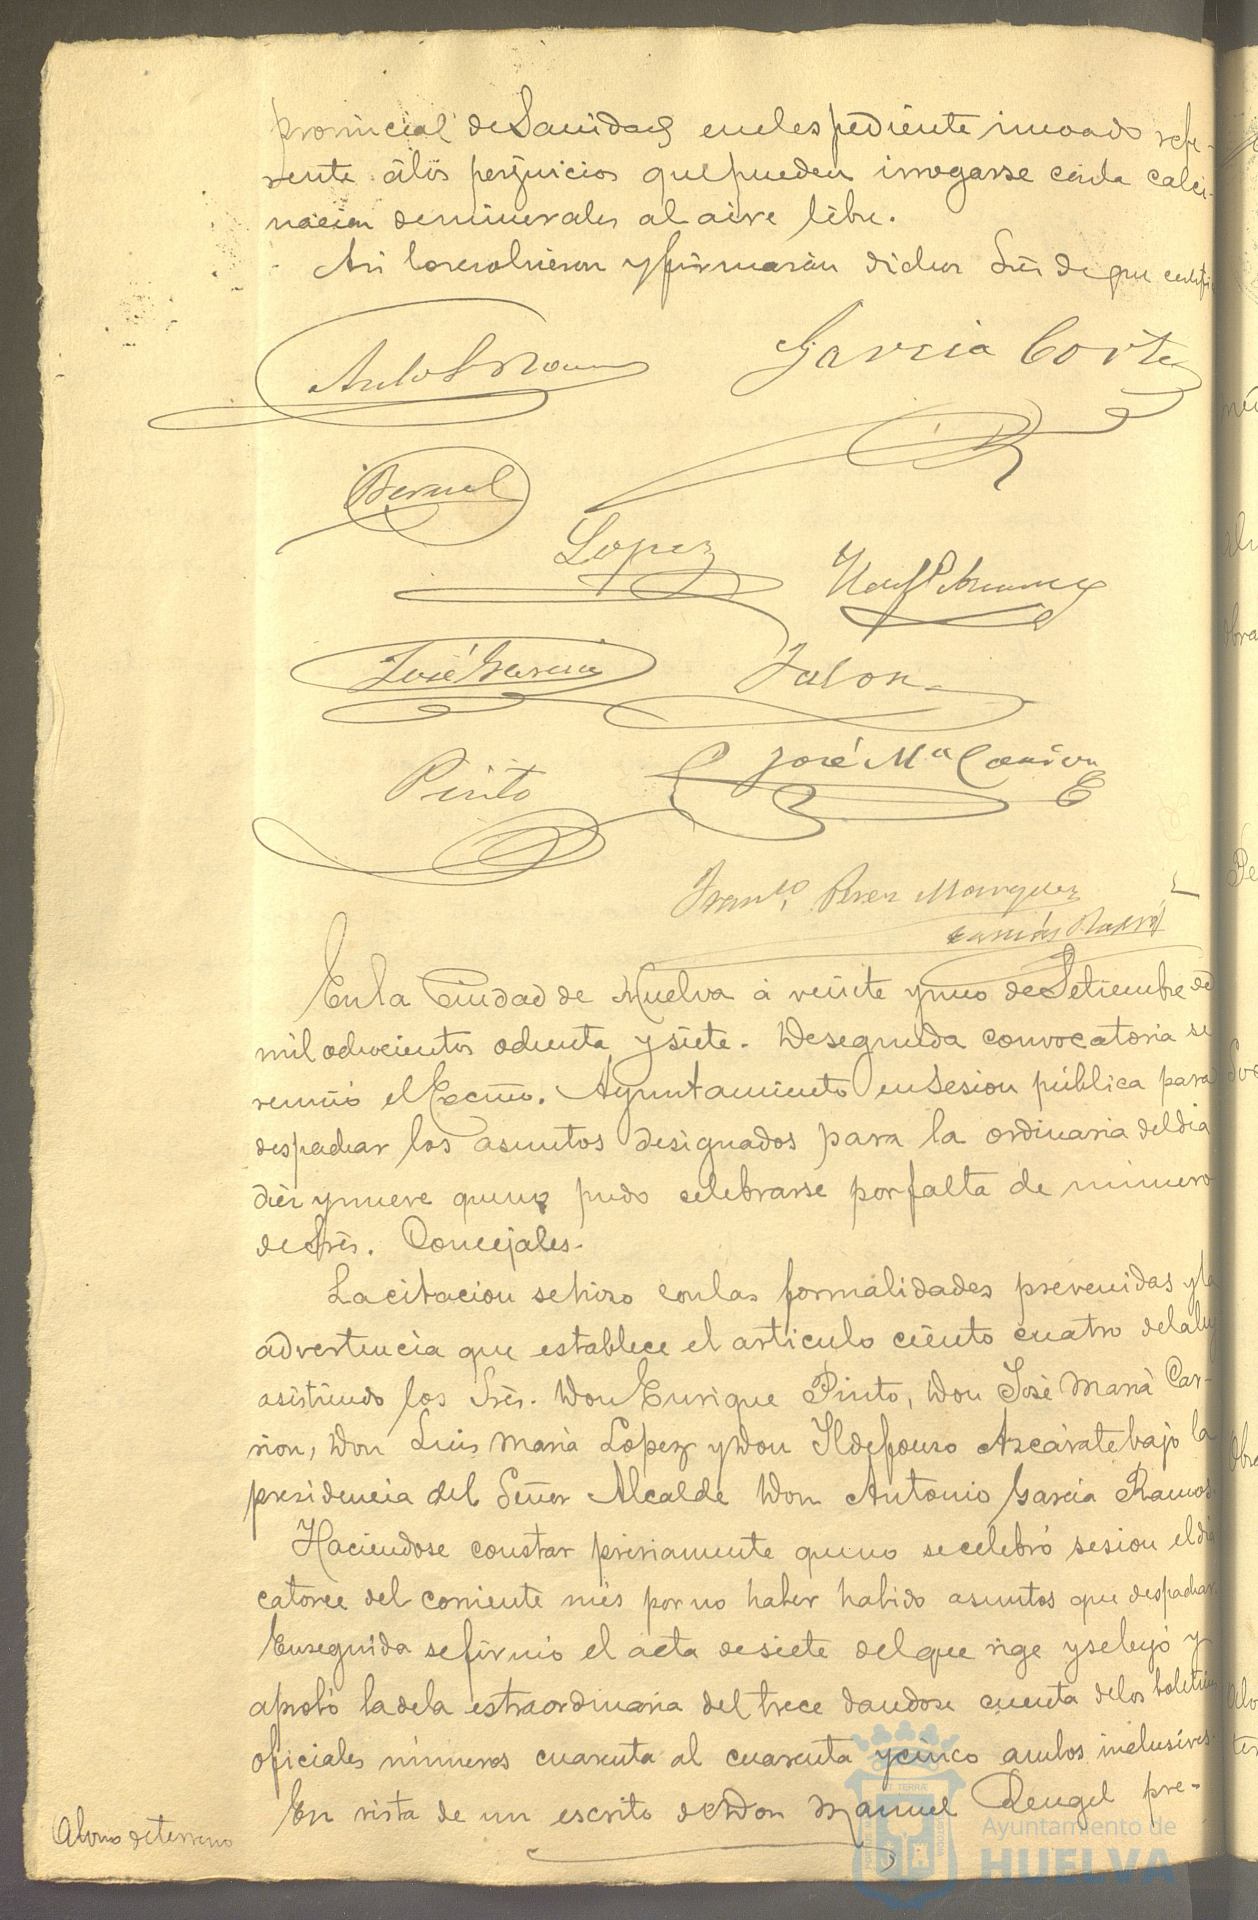 provincial de Sanidad en el espediente incoado refe-
rente á los perjuicios que pueden irrogarse con la calci-
nacion de minerales al aire libre.
Asi lo resolvieron y firmarán dichos Srés de que certifi
Garcia Cortes
Bernal
Lopez
José Garcia
Jalon
Pinto
José Mª Carrion
E
Franco. Perez Marquez
En la Ciudad de Huelva á veinte y uno de Setiembre de
mil ochocientos ochenta y siete. De segunda convocatoria se
reunió el Excmo. Ayuntamiento en Sesion pública para
despachar los asuntos designados para la ordinaria del dia
diez y nueve que no pudo celebrarse por falta de número
de Srés. Concejales.
La citacion se hizo con las formalidades prevenidas y la
advertencia que establece el articulo ciento cuatro de la ley
asistiendo los Srés. Don Enrique Pinto, Don José Maria Car-
rion, Don Luis Maria Lopez y Don Ildefonso Azcárate bajo la
presidencia del Señor Alcalde Don Antonio Garcia Ramos.
Haciendose constar préviamente que no se celebró sesion el dia
catorce del corriente més por no haber habido asuntos que despachar.
Enseguida se firmó el acta de siete del que rige y se leyó y
aprobó la de la estraordinaria del trece dandose cuenta de los boletines
oficiales números cuarenta al cuarenta y cinco ambos inclusives.
Abono de terreno
En vista de un escrito de Don Manuel Rengel pre-
Ayuntamiento de
HUELVA